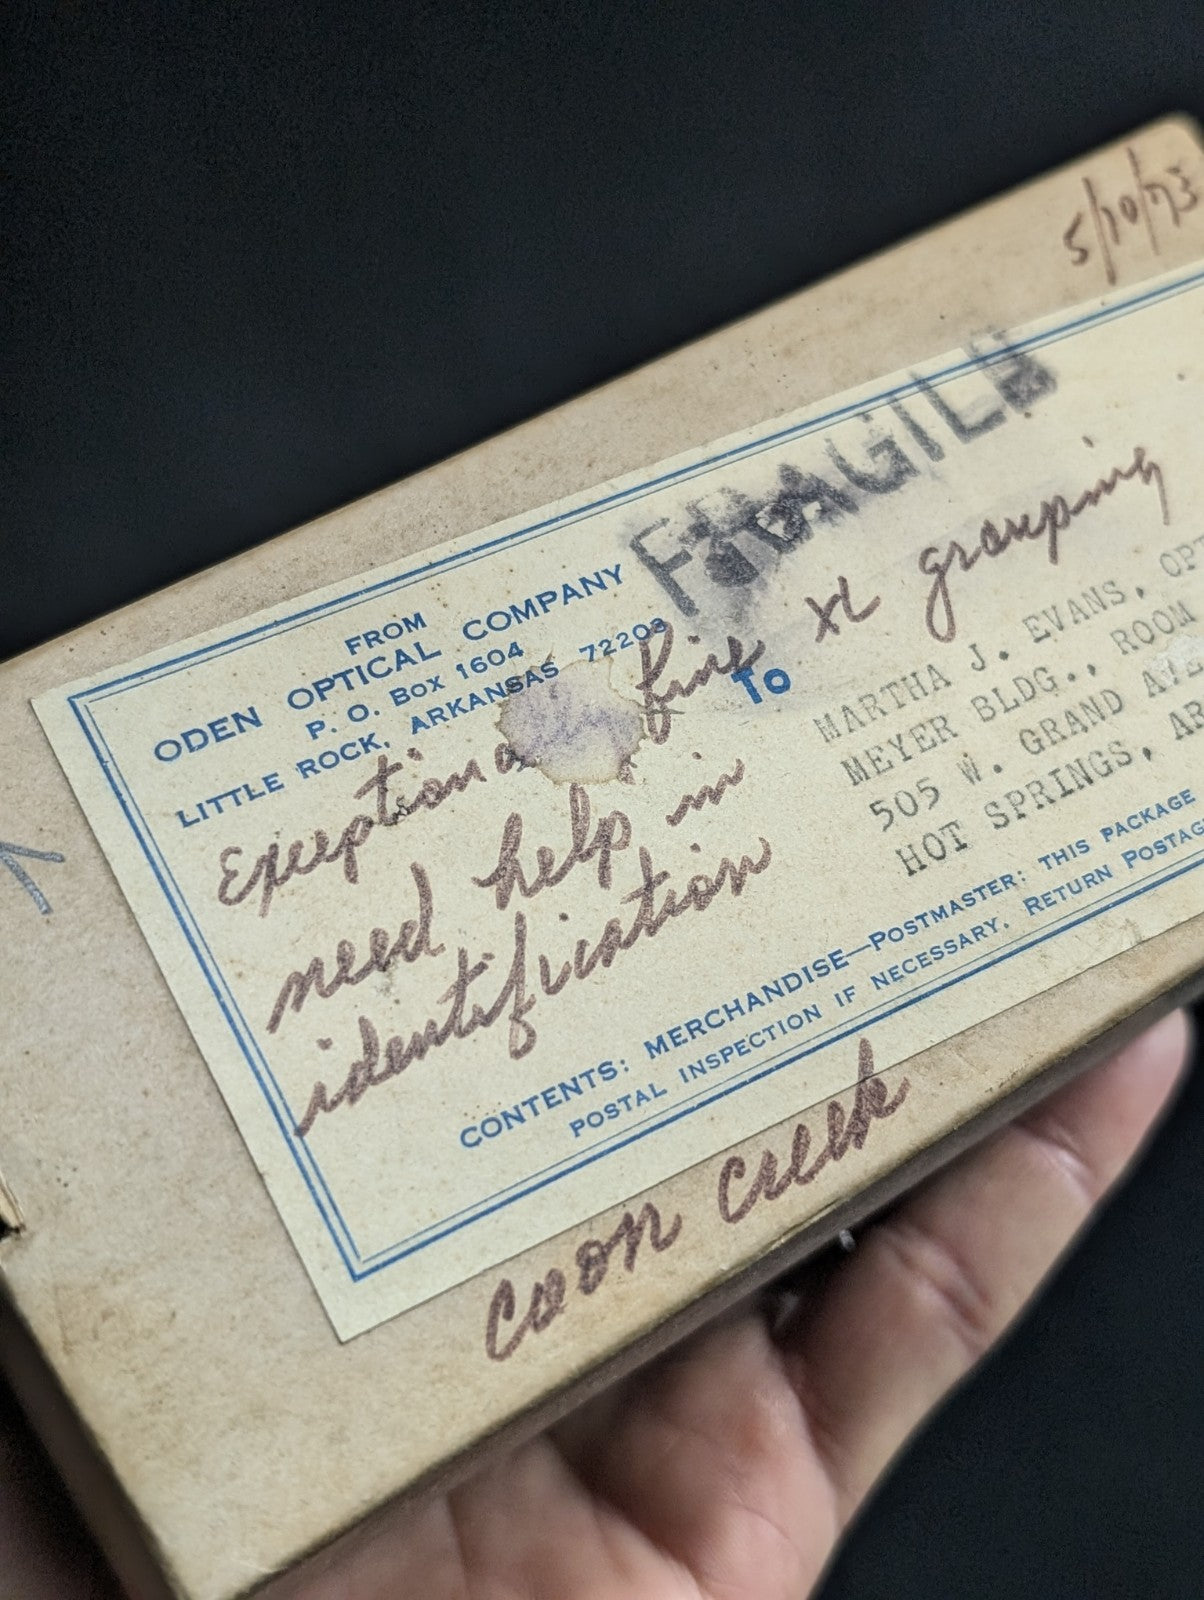 5/10/73
FRAGILE
FROM
ODEN OPTICAL COMPANY
P. O. BOX 1604
LITTLE ROCK, ARKANSAS 72203
TO
MARTHA J. EVANS, OPT
MEYER BLDG., ROOM
505 W. GRAND AVE
HOT SPRINGS, AR
fine XL grouping
need help in
identification
CONTENTS: MERCHANDISE—POSTMASTER: THIS PACKAGE
POSTAL INSPECTION IF NECESSARY. RETURN POSTAG
Coon Creek